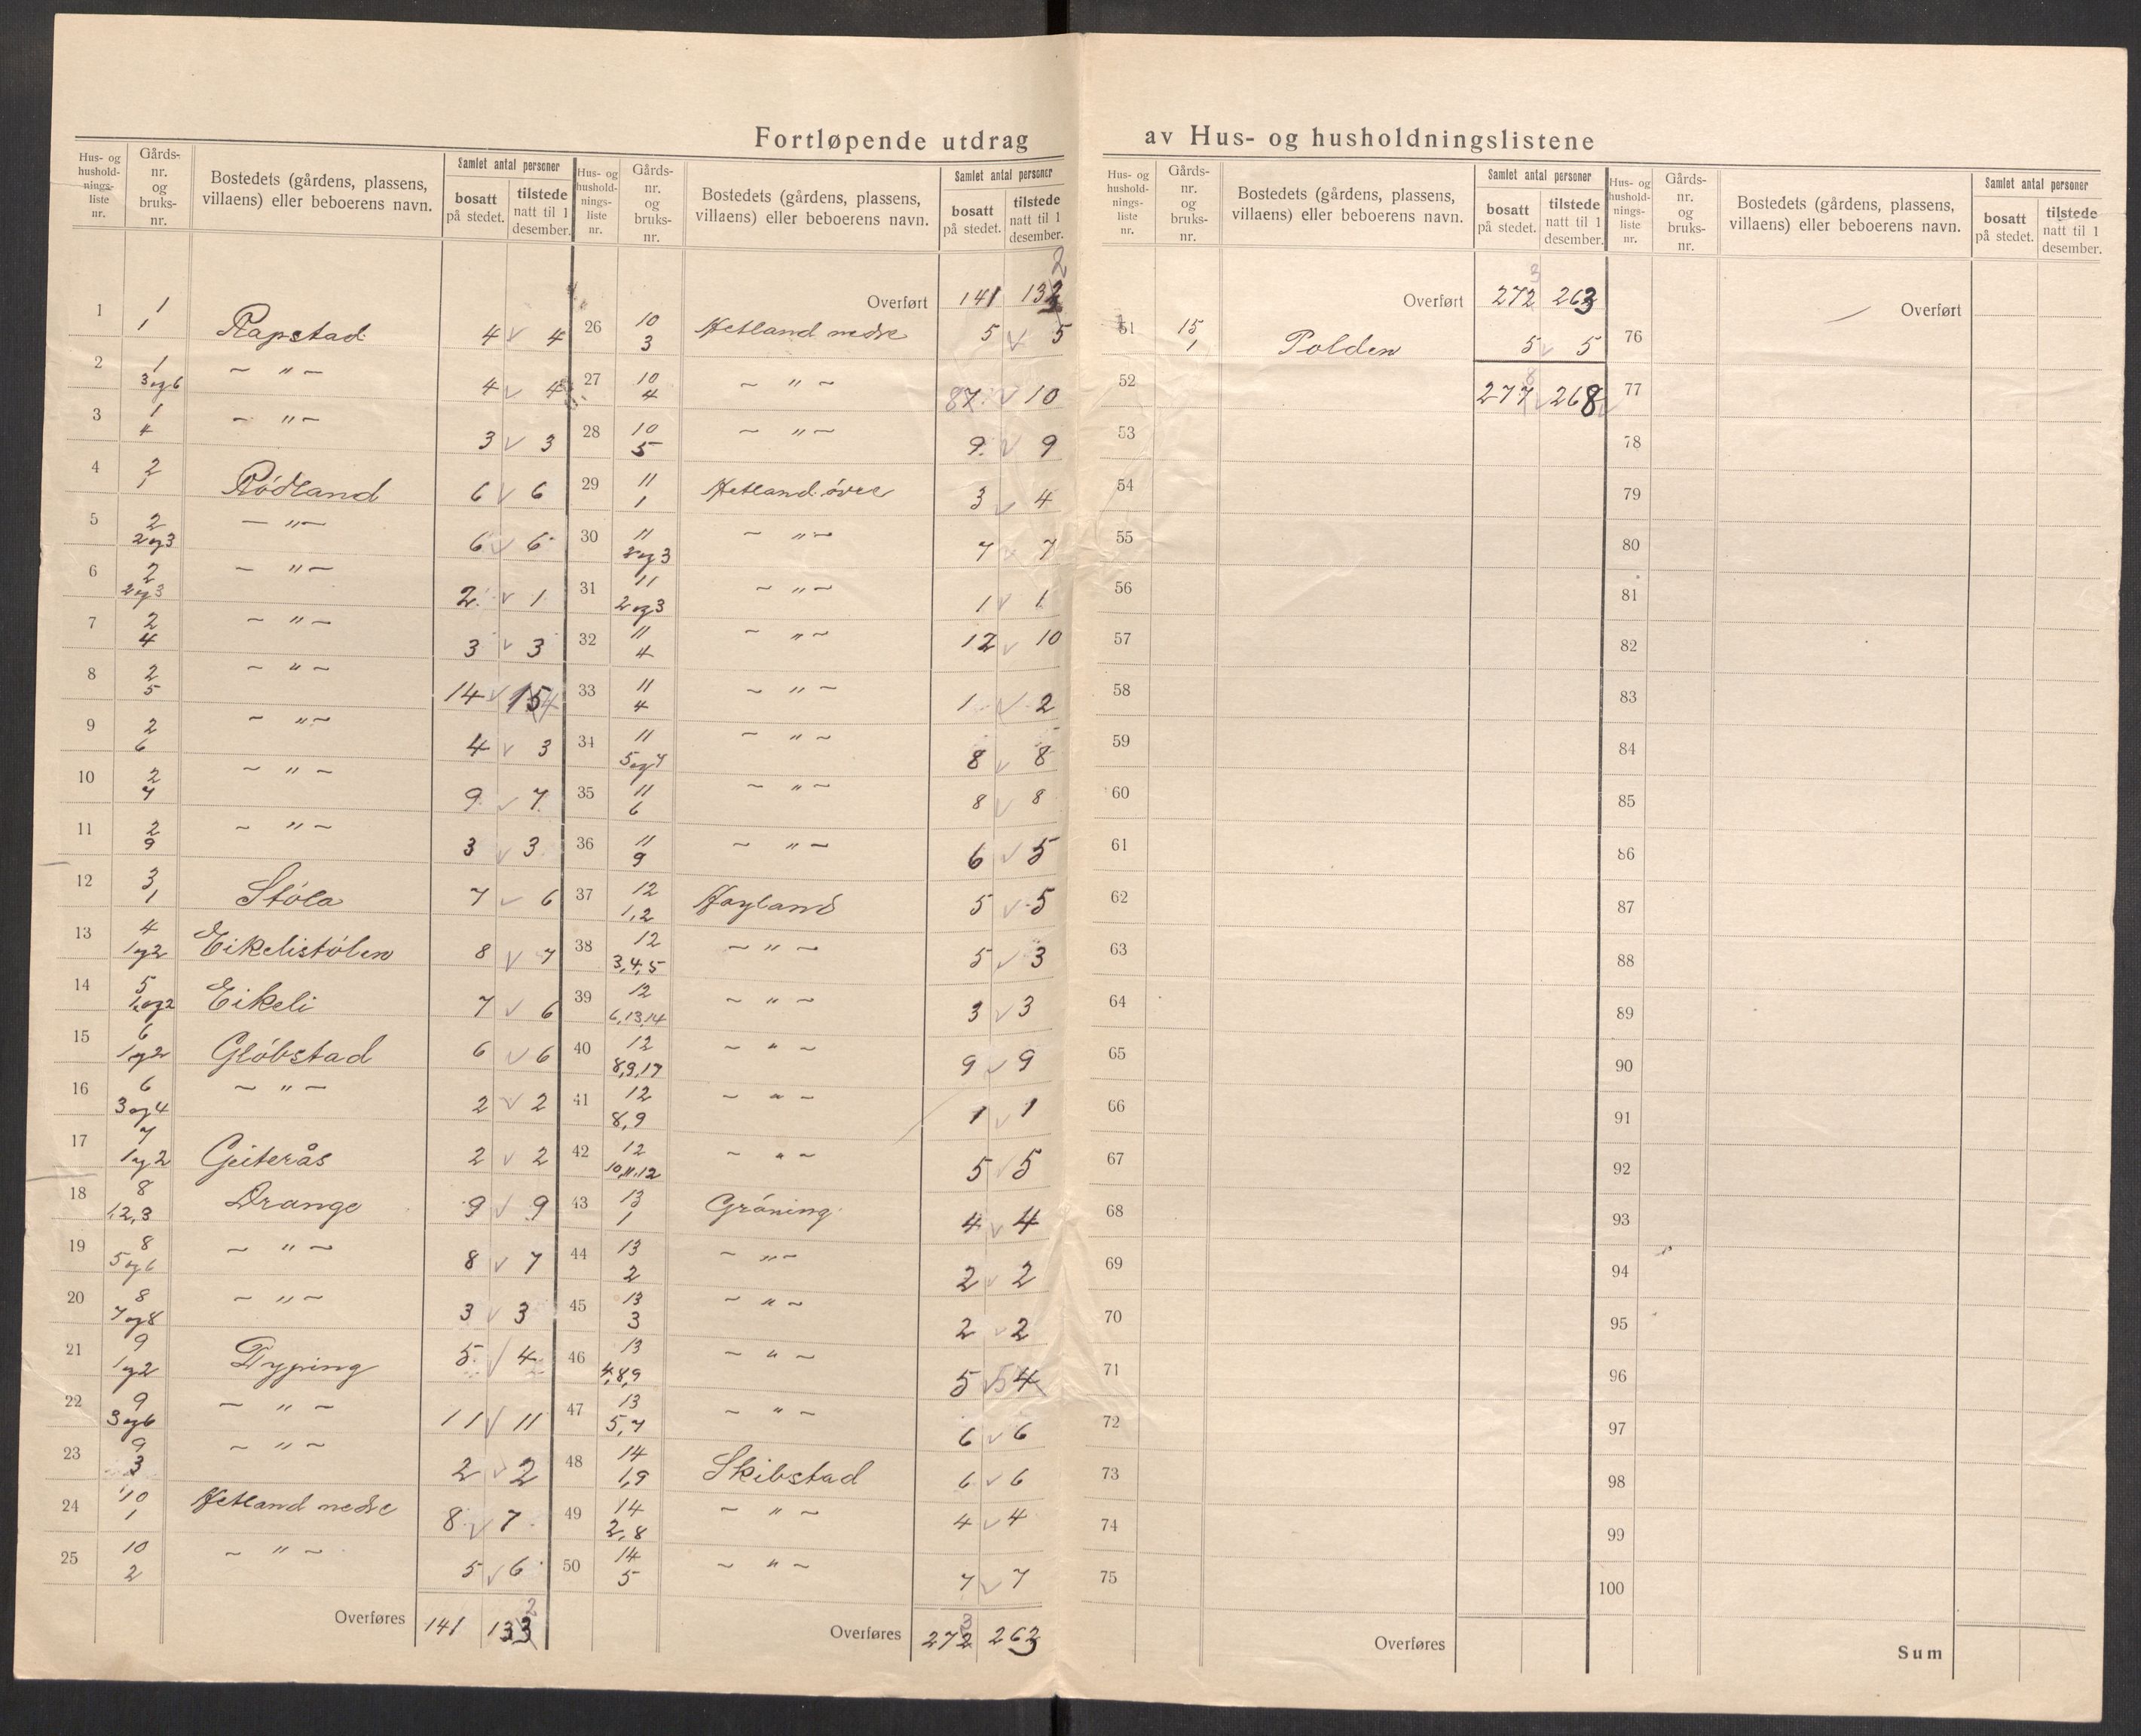 Fortløpende utdrag av Hus- og husholdningslistene
Hus- og husholdnings-liste nr. | Gårds-nr. og bruks-nr. | Bostedets (gårdens, plassens, villaens) eller beboerens navn. | Samlet antal personer bosatt på stedet. | tilstede natt til 1 desember.
1 | 1 1 | Rapstad | 4 v 4
2 | 1 3og6 | ~ " ~ | 4 v 4
3 | 1 4 | ~ " ~ | 3 v 3
4 | 2 1 | Rødland | 6 v 6
5 | 2 2og3 | ~ " ~ | 6 v 6
6 | 2 2og3 | ~ " ~ | 2 v 1
7 | 2 4 | ~ " ~ | 3 v 3
8 | 2 5 | ~ " ~ | 14 v 15 4
9 | 2 6 | ~ " ~ | 4 v 3
10 | 2 7 | ~ " ~ | 9 v 7
11 | 2 9 | ~ " ~ | 3 v 3
12 | 3 1 | Støla | 7 v 6
13 | 4 1og2 | Eikelistølen | 8 v 7
14 | 5 1og2 | Eikeli | 7 v 6
15 | 6 1og2 | Gløbstad | 6 v 6
16 | 6 3og4 | ~ " ~ | 2 v 2
17 | 7 1og2 | Geiterås | 2 v 2
18 | 8 1,2,3 | Drange | 9 v 9
19 | 8 5og6 | ~ " ~ | 8 v 7
20 | 8 7og8 | ~ " ~ | 3 v 3
21 | 9 1og2 | Typing | 5 v 4
22 | 9 3og6 | ~ " ~ | 11 v 11
23 | 9 3 | ~ " ~ | 2 v 2
24 | 10 1 | Hetland nedre | 8 v 7
25 | 10 2 | ~ " ~ | 5 v 6
Overføres | 141 | 133 2
Hus- og husholdnings-liste nr. | Gårds-nr. og bruks-nr. | Bostedets (gårdens, plassens, villaens) eller beboerens navn. | Samlet antal personer bosatt på stedet. | tilstede natt til 1 desember.
Overført | 141 | 132 2
26 | 10 3 | Hetland nedre | 5 v 5
27 | 10 4 | ~ " ~ | 87 v 10
28 | 10 5 | ~ " ~ | 9 v 9
29 | 11 1 | Hetland øvre | 3 v 4
30 | 11 2og3 | ~ " ~ | 7 v 7
31 | 11 2og3 | ~ " ~ | 1 v 1
32 | 11 4 | ~ " ~ | 12 v 10
33 | 11 4 | ~ " ~ | 1 v 2
34 | 11 5og7 | ~ " ~ | 8 v 8
35 | 11 6 | ~ " ~ | 8 v 8
36 | 11 9 | ~ " ~ | 6 v 5
37 | 12 1,2 | Høyland | 5 v 5
38 | 12 3,4,5 | ~ " ~ | 5 v 3
39 | 12 6,13,14 | ~ " ~ | 3 v 3
40 | 12 8,9,17 | ~ " ~ | 9 v 9
41 | 12 8,9 | ~ " ~ | 1 v 1
42 | 12 10,11,12 | ~ " ~ | 5 v 5
43 | 13 1 | Grøning | 4 v 4
44 | 13 2 | ~ " ~ | 2 v 2
45 | 13 3 | ~ " ~ | 2 v 2
46 | 13 4,8,9 | ~ " ~ | 5 v 5 4
47 | 13 5,7 | ~ " ~ | 6 v 6
48 | 14 1,9 | Skibstad | 6 v 6
49 | 14 2,8 | ~ " ~ | 4 v 4
50 | 14 5 | ~ " ~ | 7 v 7
Overføres | 272 3 | 263
Hus- og husholdnings-liste nr. | Gårds-nr. og bruks-nr. | Bostedets (gårdens, plassens, villaens) eller beboerens navn. | Samlet antal personer bosatt på stedet. | tilstede natt til 1 desember.
Overført | 272 3 | 263
51 | 15 1 | Polden | 5 v 5
52 | 277 8 v 268 v
53
54
55
56
57
58
59
60
61
62
63
64
65
66
67
68
69
70
71
72
73
74
75
Overføres
Hus- og husholdnings-liste nr. | Gårds-nr. og bruks-nr. | Bostedets (gårdens, plassens, villaens) eller beboerens navn. | Samlet antal personer bosatt på stedet. | tilstede natt til 1 desember.
Overført
76
77
78
79
80
81
82
83
84
85
86
87
88
89
90
91
92
93
94
95
96
97
98
99
100
Sum